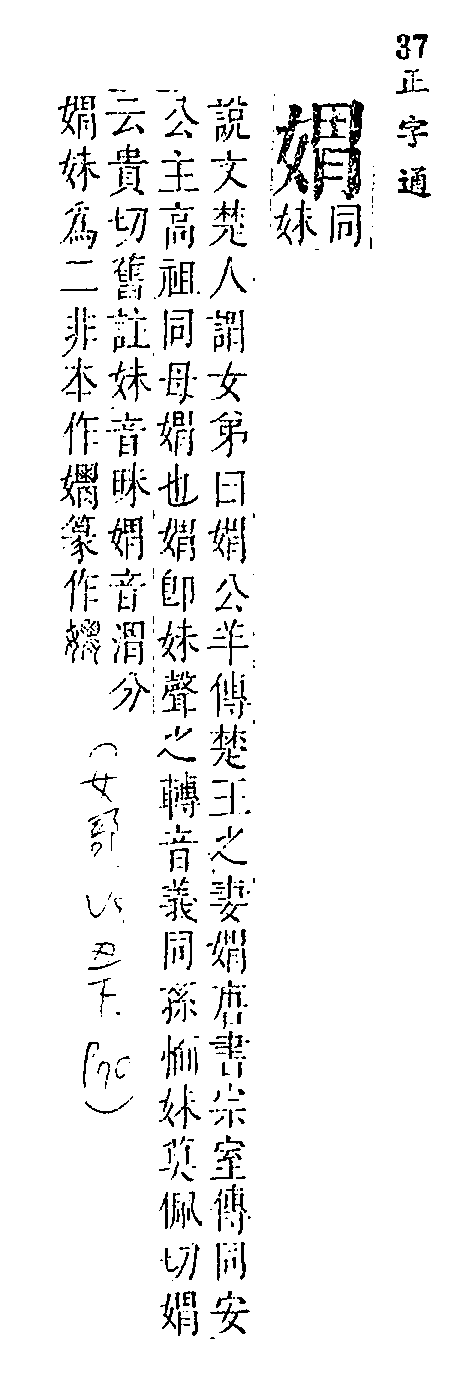 37正字通
媦
同
妹
說文楚人謂女弟曰媦公羊傳楚王之妻媦唐書宗室傳同安
公主高祖同母媦也媦卽妹聲之轉音義同孫愐妹莫佩切媦
云貴切舊註妹音昧媦音渭分
媦妹爲二非本作篆作
(女部 丑下.)